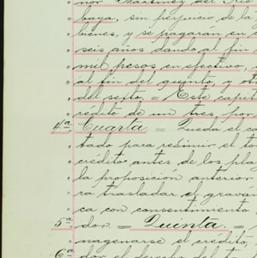 nor
baya, sin perjuicio de la
bienes, y se pagaran en
seis años dando al fin
mil pesos en efectivo,
al fin del quinto, y
del sesto = Este capit
rédito de un tres, por
4ª Cuarta = Queda el ca
tado para redimir el to
crédito antes de los pla
la proposicion anterior
rá trasladar el gravám
ca con consentimiento
5ª dor. = Quinta. =
magenarse el crédito,
6ª dor el derecho del